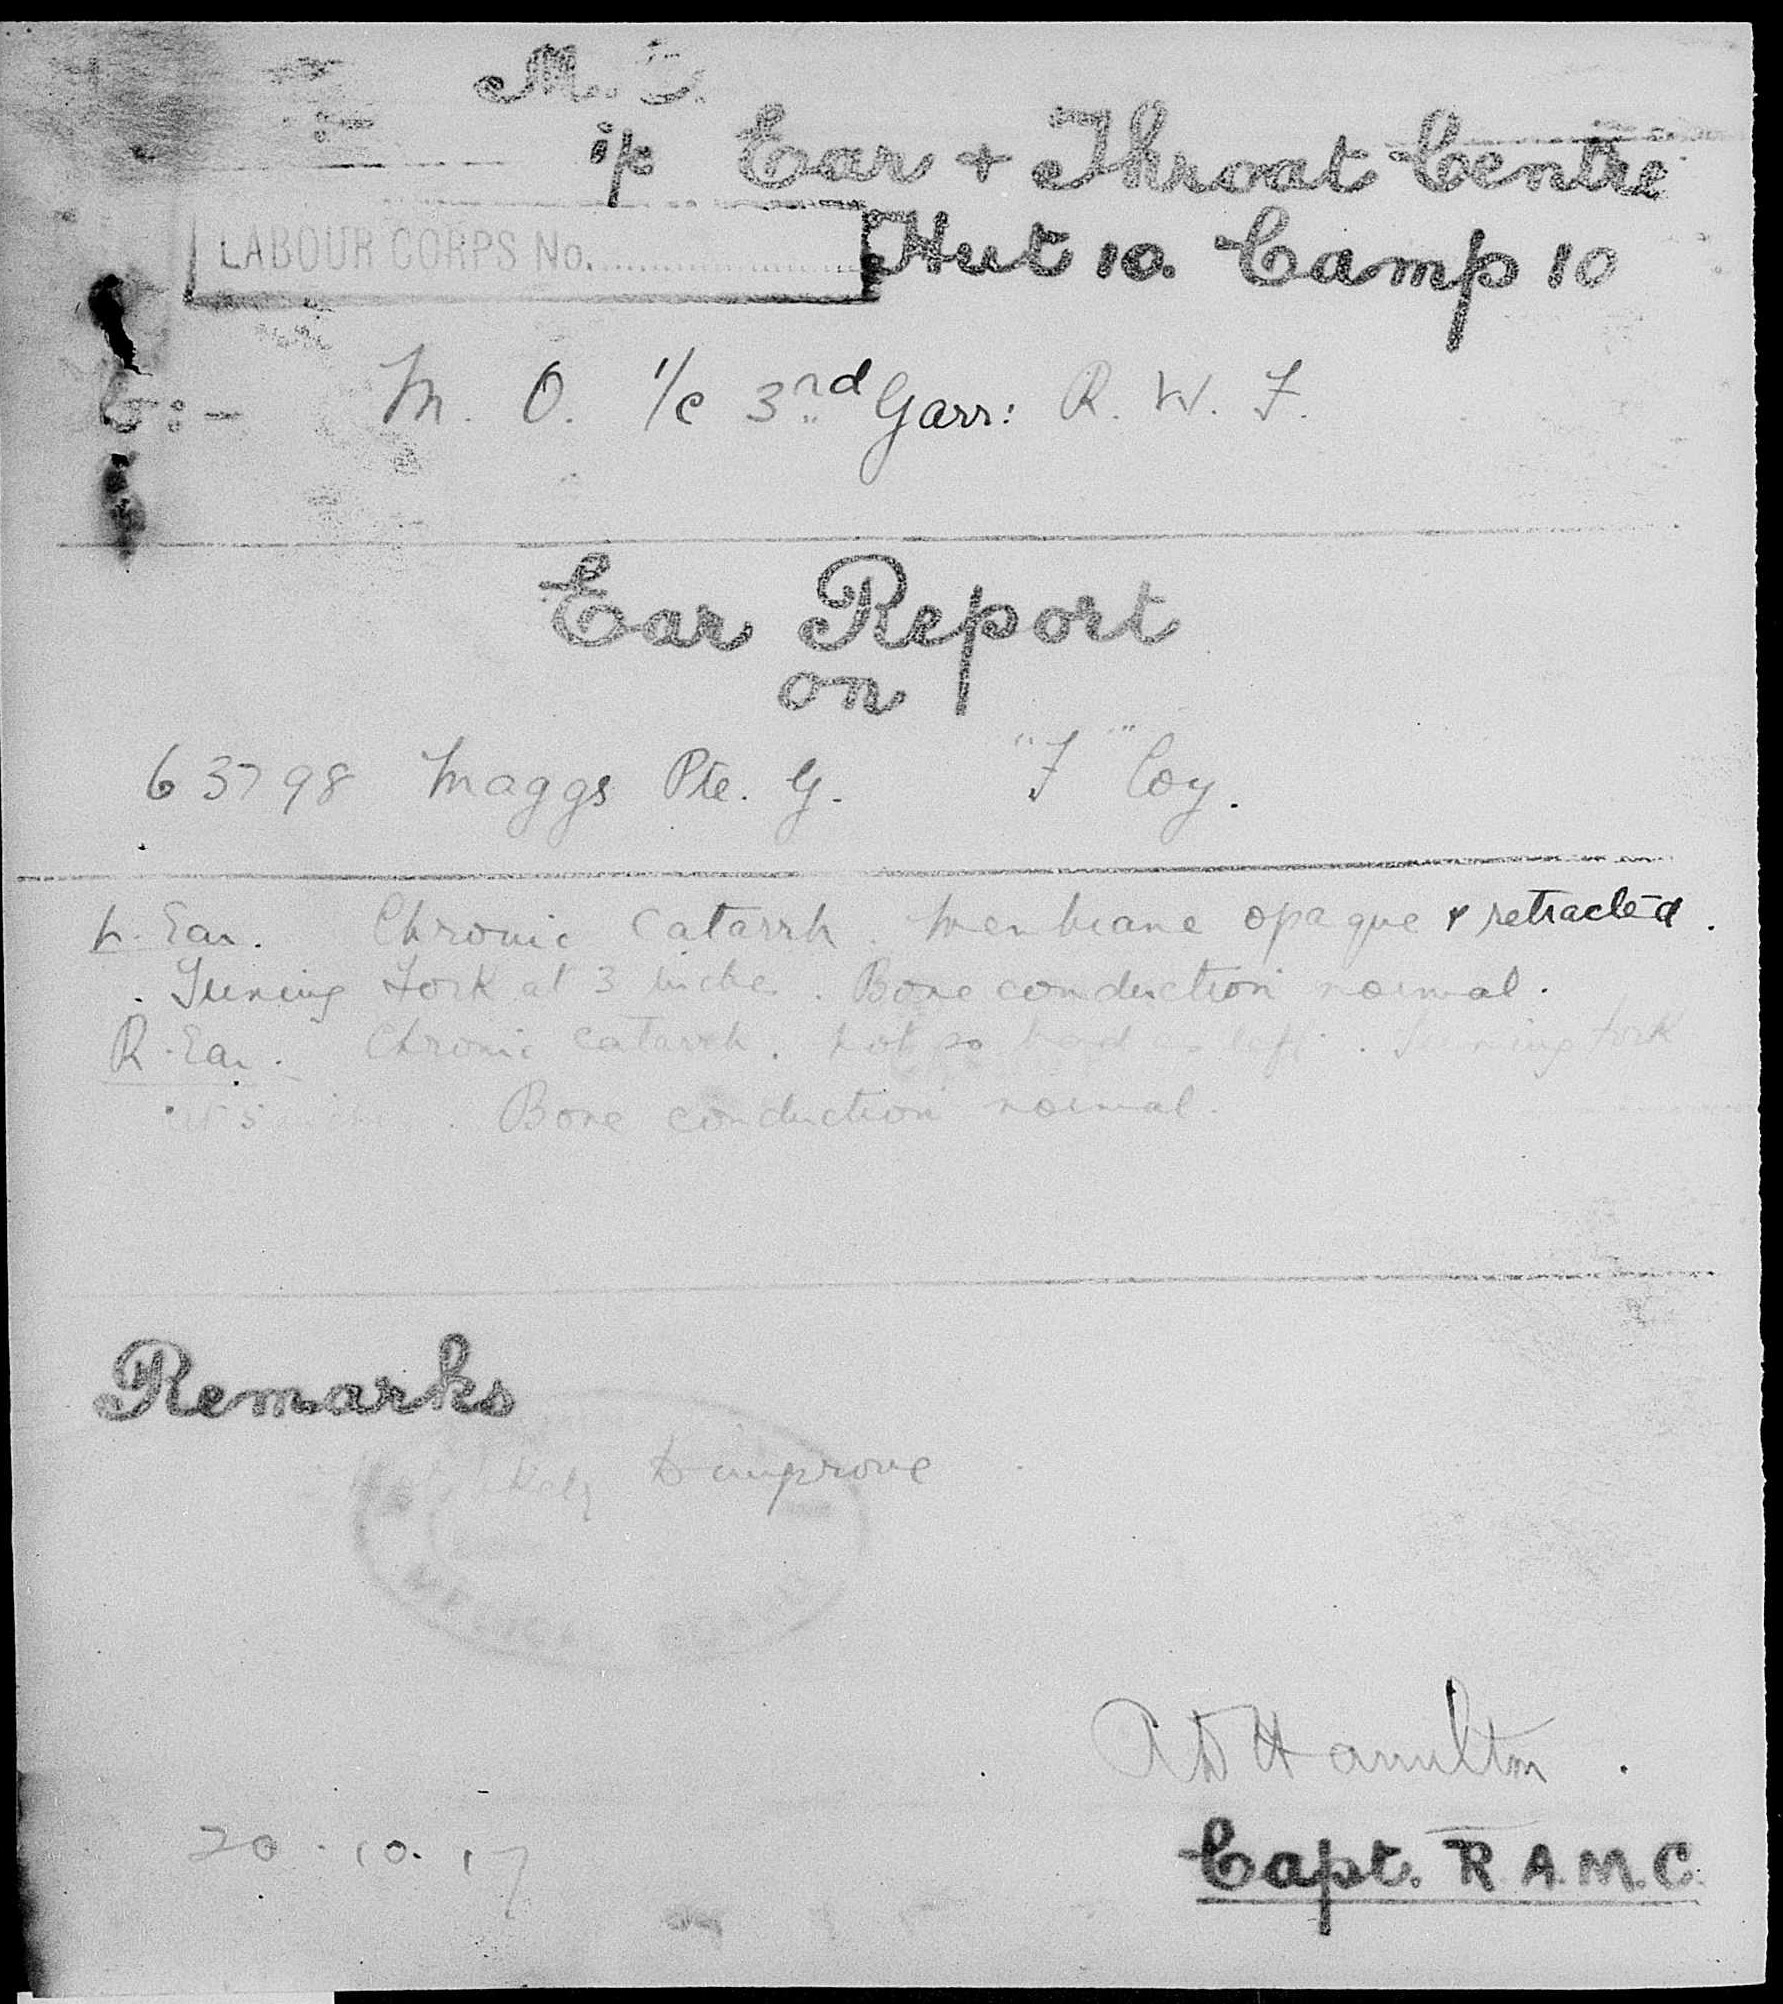 M. O.
i/c Ear + Throat Centre
LABOUR CORPS No.
Hut 10. Camp 10
M. O. i/c 3rd Garr: R. W. F.
Ear Report
on
63798 Maggs Pte. G. "F" Coy.
L. Ear. Chronic Catarrh. Membrane opaque & retracted.
Tuning Fork at 3 inches. Bone conduction normal.
R. Ear. Chronic Catarrh. Not so bad as left. Tuning Fork
at 5 inches. Bone conduction normal.
Remarks
Not likely to improve
MEDICAL
Hamilton
Capt. R.A.M.C.
20.10.17